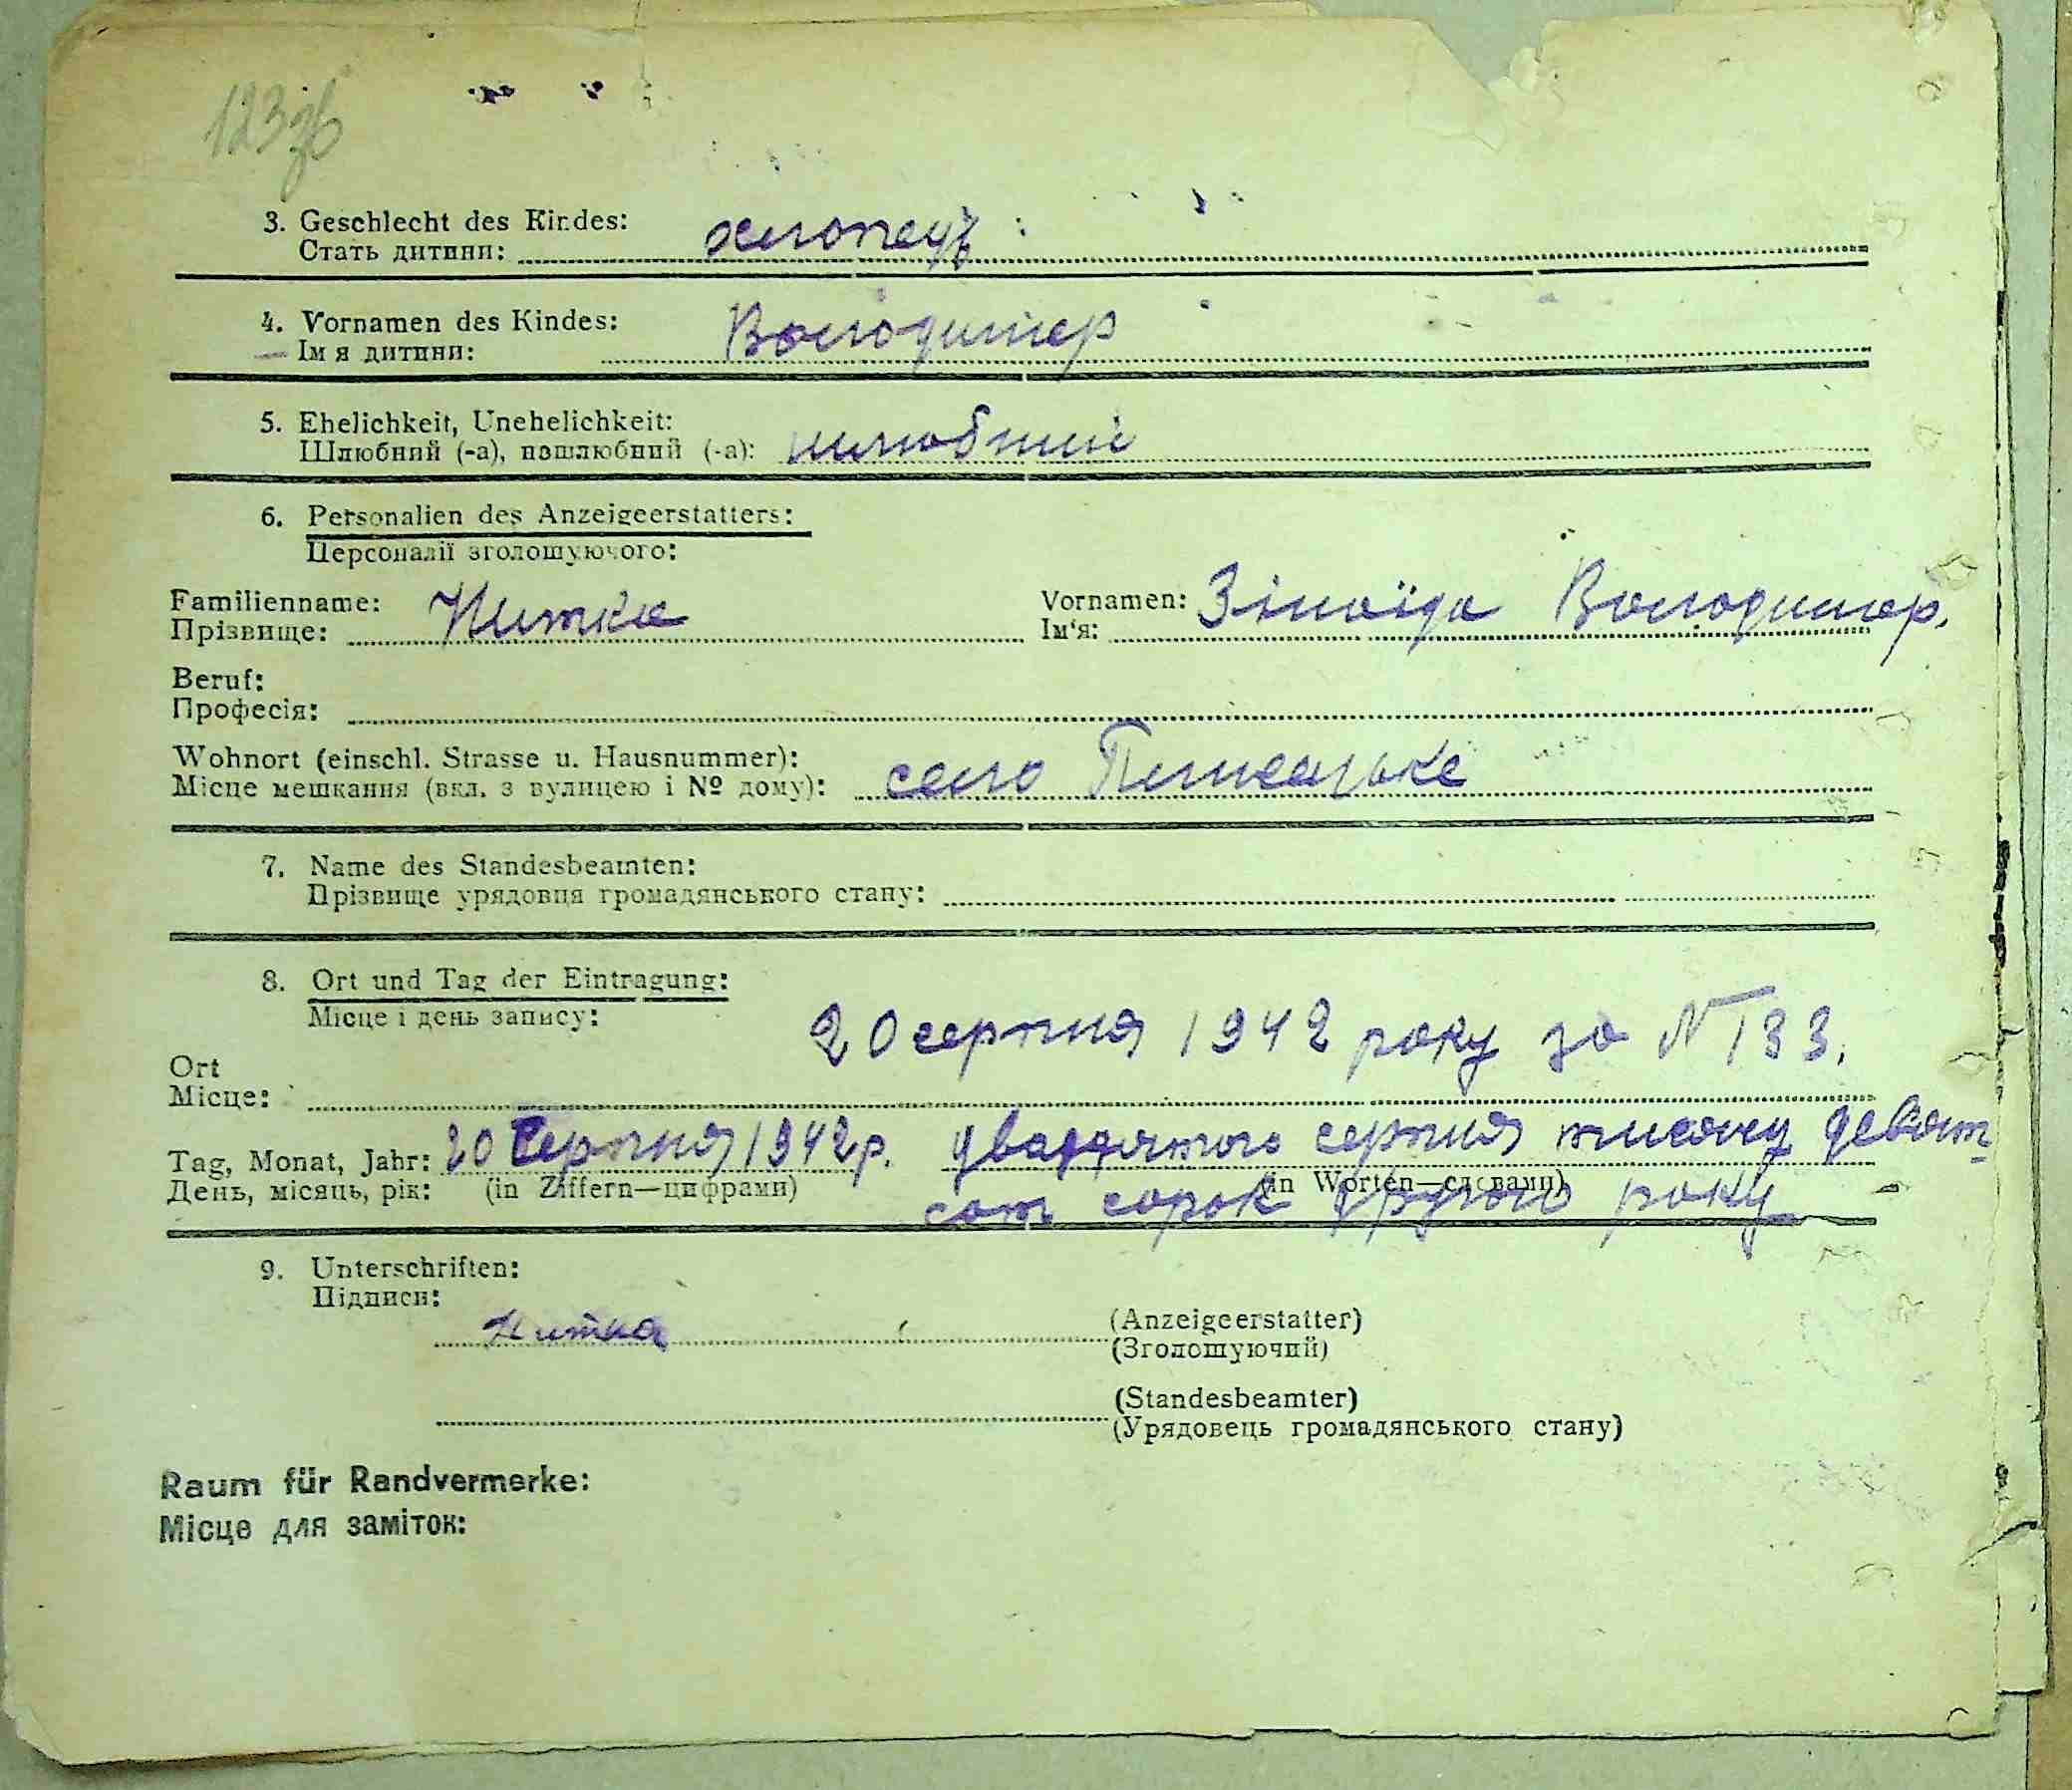 123зв
3. Geschlecht des Kindes:
Стать дитини: хлопець
4. Vornamen des Kindes:
Ім я дитини: Володимер
5. Ehelichkeit, Unehelichkeit:
Шлюбний (-а), пошлюбний (-а): шлюбний
6. Personalien des Anzeigeerstatters:
Персоналії зголошуючого:
Familienname: Vornamen:
Прізвище: Нитка Ім'я: Зінаїда Володимер.
Beruf:
Професія:
Wohnort (einschl. Strasse u. Hausnummer):
Місце мешкання (вкл. з вулицею і № дому): село
7. Name des Standesbeamten:
Прізвище урядовця громадянського стану:
8. Ort und Tag der Eintragung:
Місце і день запису:
20 серпня 1942 року за N 133.
Ort
Місце:
Tag, Monat, Jahr: 20 Серпня 1942р. двадцятого серпня тисячу девят-
День, місяць, рік: (in Ziffern—цифрами) (in Worten—словами)
сот сорок другого року
9. Unterschriften:
Підписи:
Нитка (Anzeigeerstatter)
(Зголошуючий)
(Standesbeamter)
(Урядовець громадянського стану)
Raum für Randvermerke:
Місце для заміток: